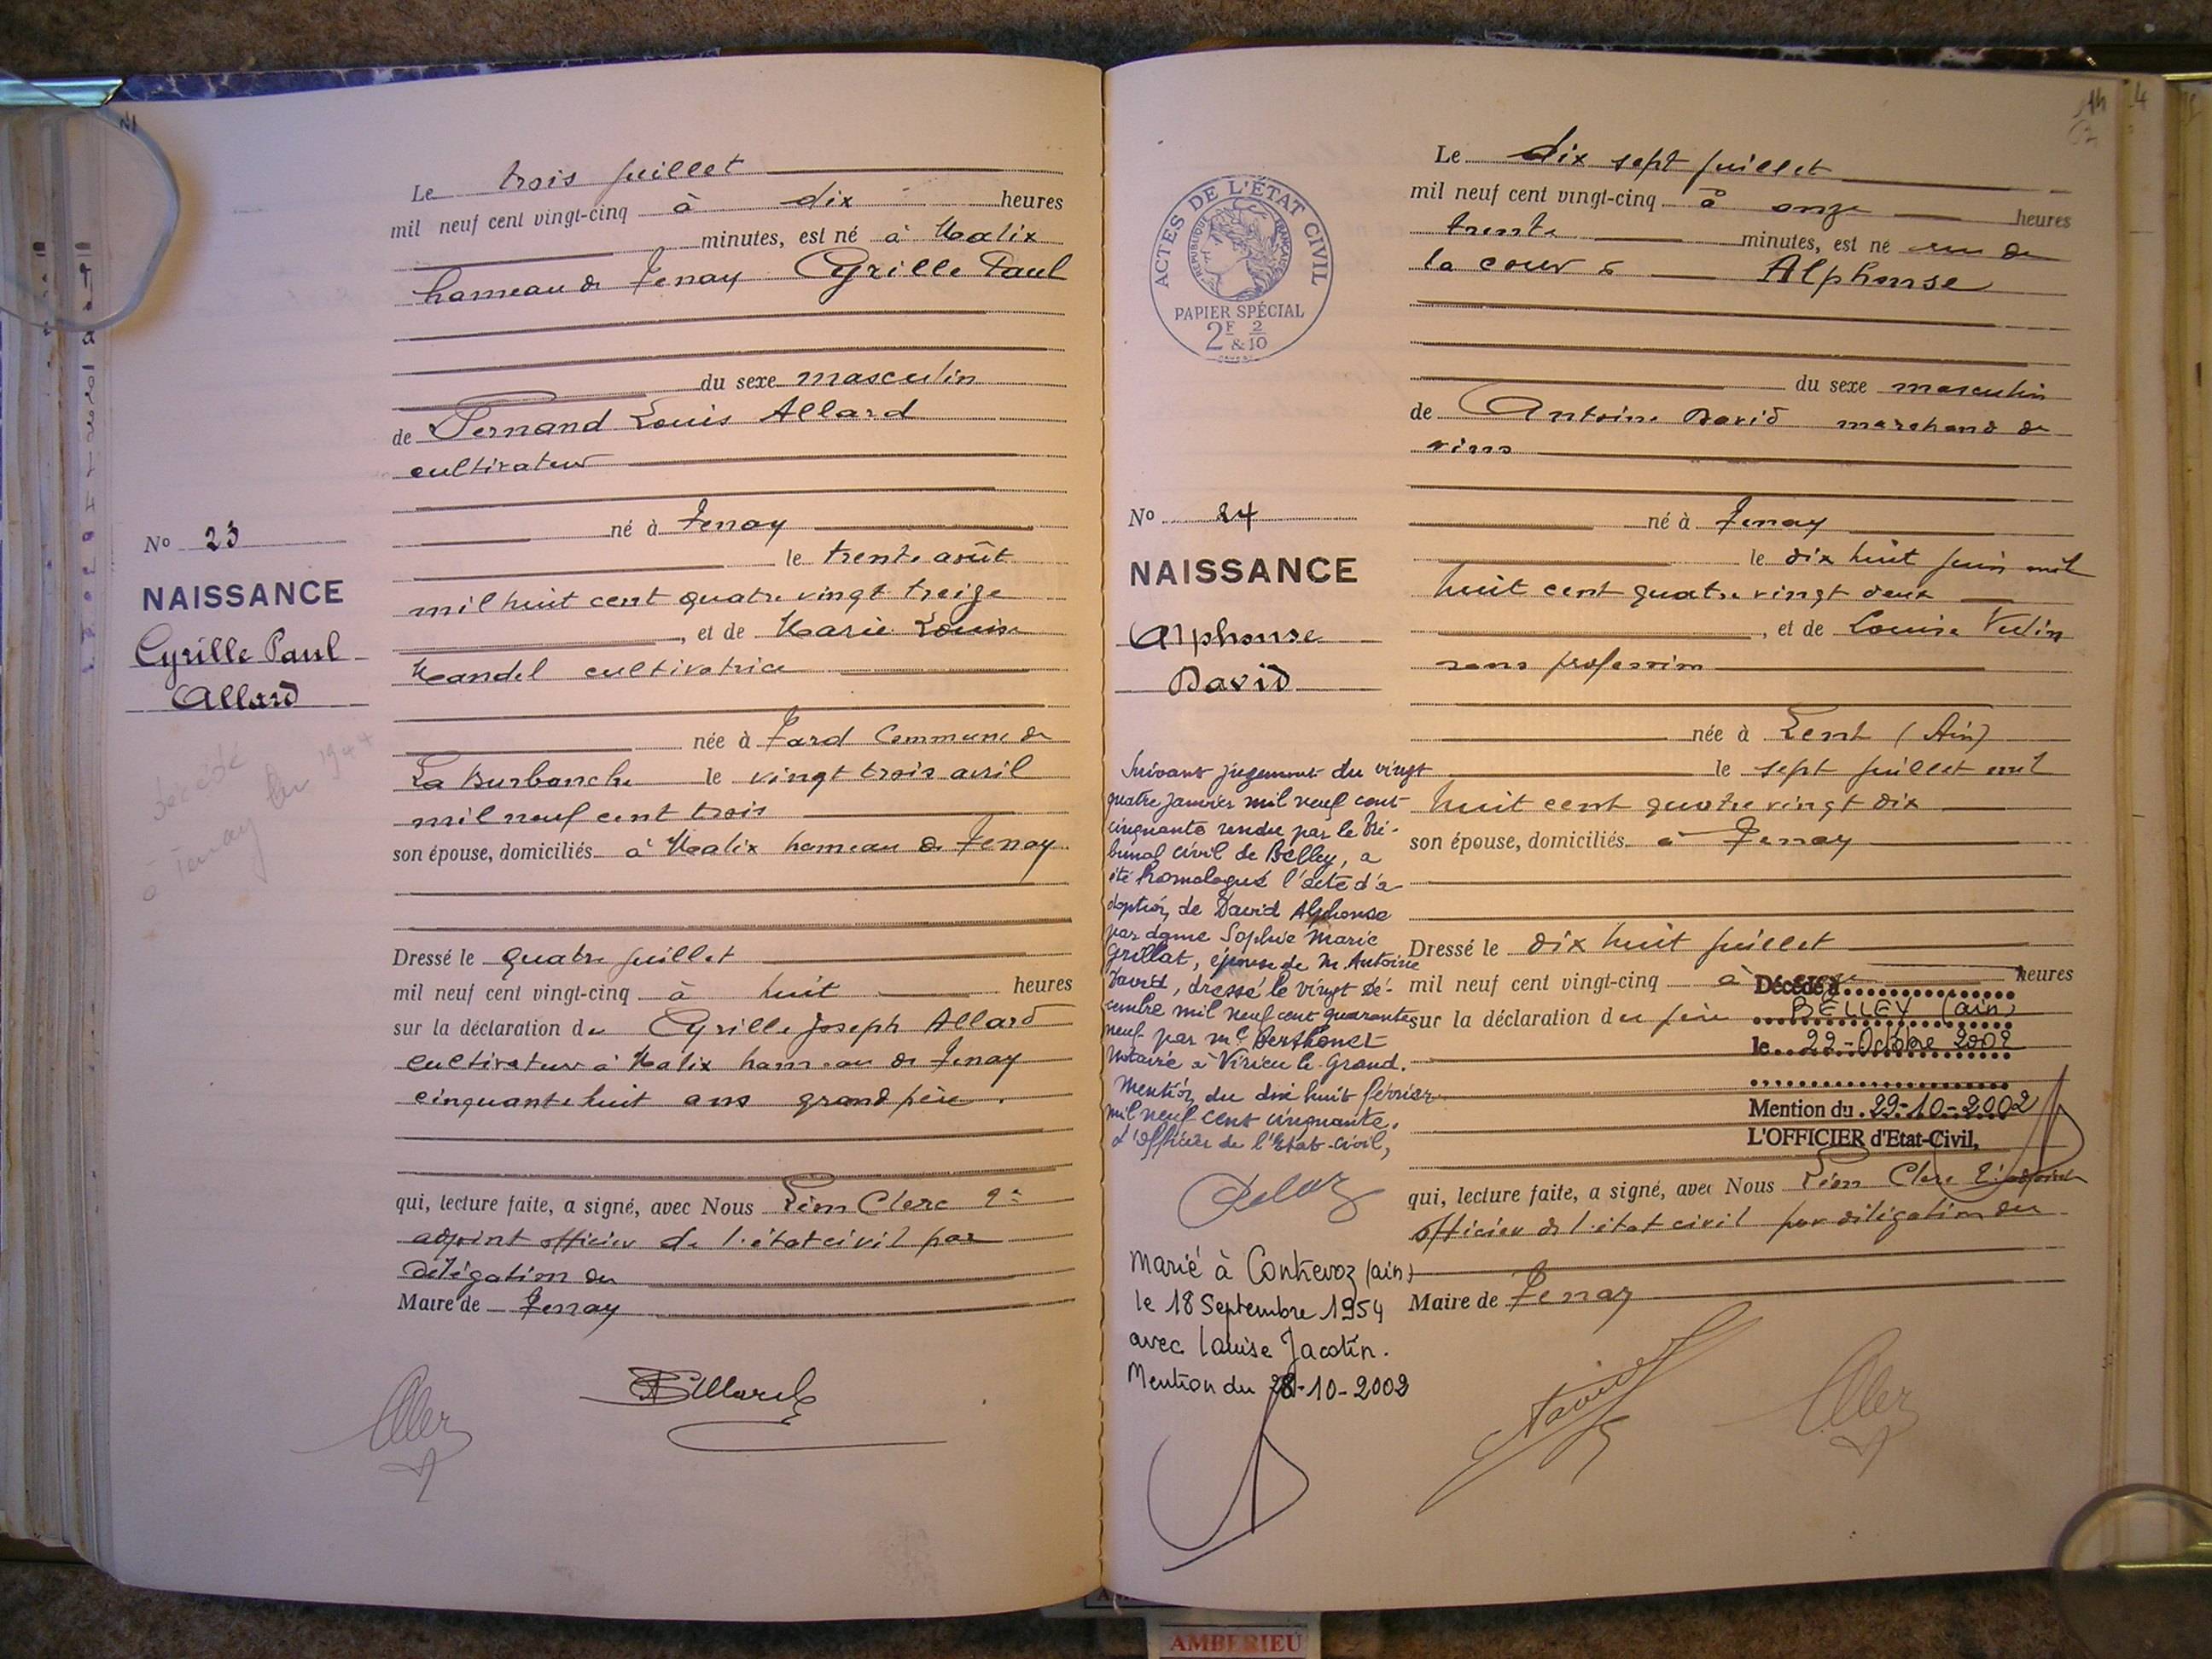 Le trois juillet
mil neuf cent vingt-cinq à dix heures
minutes, est né à Malix
hameau de Tenay Cyrille Paul
du sexe masculin
de Fernand Louis Allard
cultivateur
né à Tenay
le trente août
mil huit cent quatre vingt treize
, et de Marie Louise
Mandel cultivatrice
née à Tard Commune de
La Burbanche le vingt trois avril
mil neuf cent trois
son épouse, domiciliés à Malix hameau de Tenay
Dressé le quatre juillet
mil neuf cent vingt-cinq à huit heures
sur la déclaration de Cyrille Joseph Allard
cultivateur à Malix hameau de Tenay
cinquante huit ans grand père.
qui, lecture faite, a signé, avec Nous Léon Clerc 2e
adjoint officier de l'état civil par
délégation du
Maire de Tenay
No 23
NAISSANCE
Cyrille Paul
Allard
décédé
à Tenay
Allard
ACTES DE L'ÉTAT CIVIL
RÉPUBLIQUE FRANÇAISE
PAPIER SPÉCIAL
2F & 2/10
Le dix sept juillet
mil neuf cent vingt-cinq à onze heures
trente minutes, est né rue de
la cour 6 Alphonse
du sexe masculin
de Antoine David marchand de
vins
né à Tenay
le dix huit juin mil
huit cent quatre vingt deux
, et de Louise Vulin
sans profession
née à Lent (Ain)
le sept juillet mil
huit cent quatre vingt dix
son épouse, domiciliés à Tenay
Dressé le dix huit juillet
mil neuf cent vingt-cinq à heures
sur la déclaration du père
qui, lecture faite, a signé, avec Nous Léon Clerc 2e adjoint
officier de l'état civil par délégation du
Maire de Tenay
Décédé à
BELLEY (ain)
le 22-Octobre 2002
Mention du 29-10-2002
L'OFFICIER d'Etat-Civil,
No 24
NAISSANCE
Alphonse
David
Suivant jugement du vingt
quatre janvier mil neuf cent
cinquante rendu par le tri-
bunal civil de Belley, a
été homologué l'acte d'a-
doption, de David Alphonse
par dame Sophie Marie
Grillat, épouse de M. Antoine
David, dressé le vingt dé-
cembre mil neuf cent quarante
neuf par Me Berthonet
notaire à Virieu le Grand.
Mention du dix huit février
mil neuf cent cinquante.
L'officier de l'Etat-Civil,
Marié à Contrevoz (ain)
le 18 Septembre 1954
avec Louise Jacotin.
Mention du 28-10-2002
David
AMBERIEU